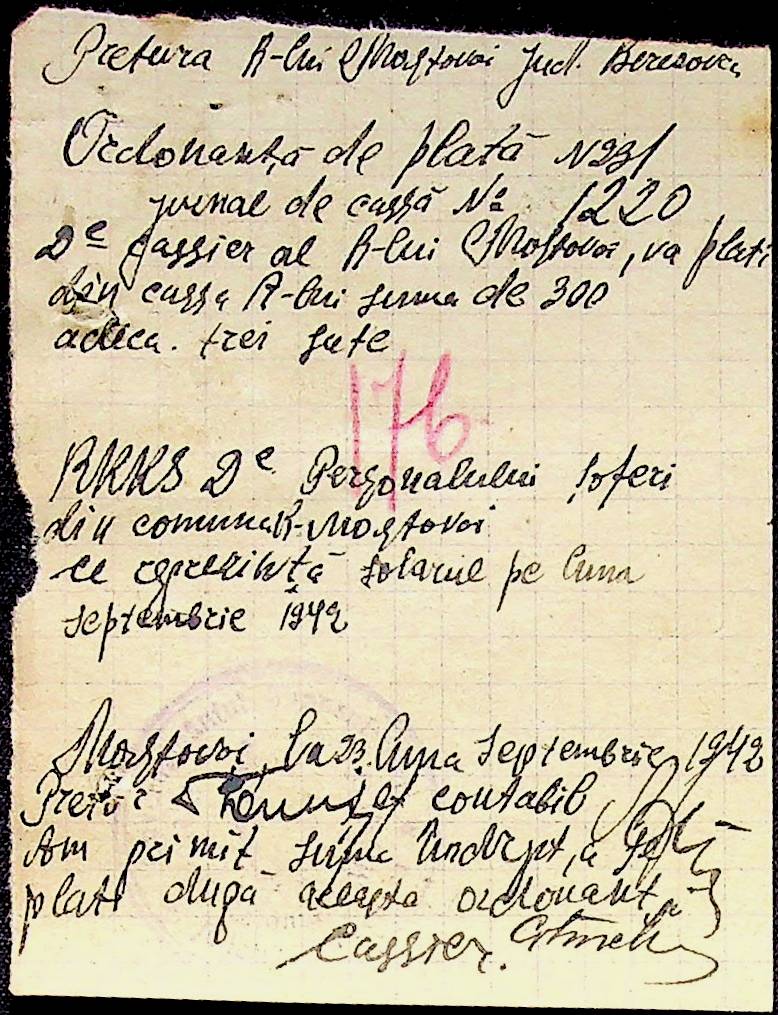 Pretura R-lui Mostovoi Jud. Beresovca
Ordonanță de plată N 231
jurnal de cassă № 1220
De cassier al R-lui Mostovoi, va plati
din cassa R-lui suma de 300
adica. trei sute
176
RKKS De Personalului șoferi
din comuna R-Mostovoi
ce reprezintă solarul pe luna
septembrie 1942
Mostovoi, la 23 luna septembrie 1942
Pretor contabil
Am primit suma
plati după aceasta ordonanță
Cassier.